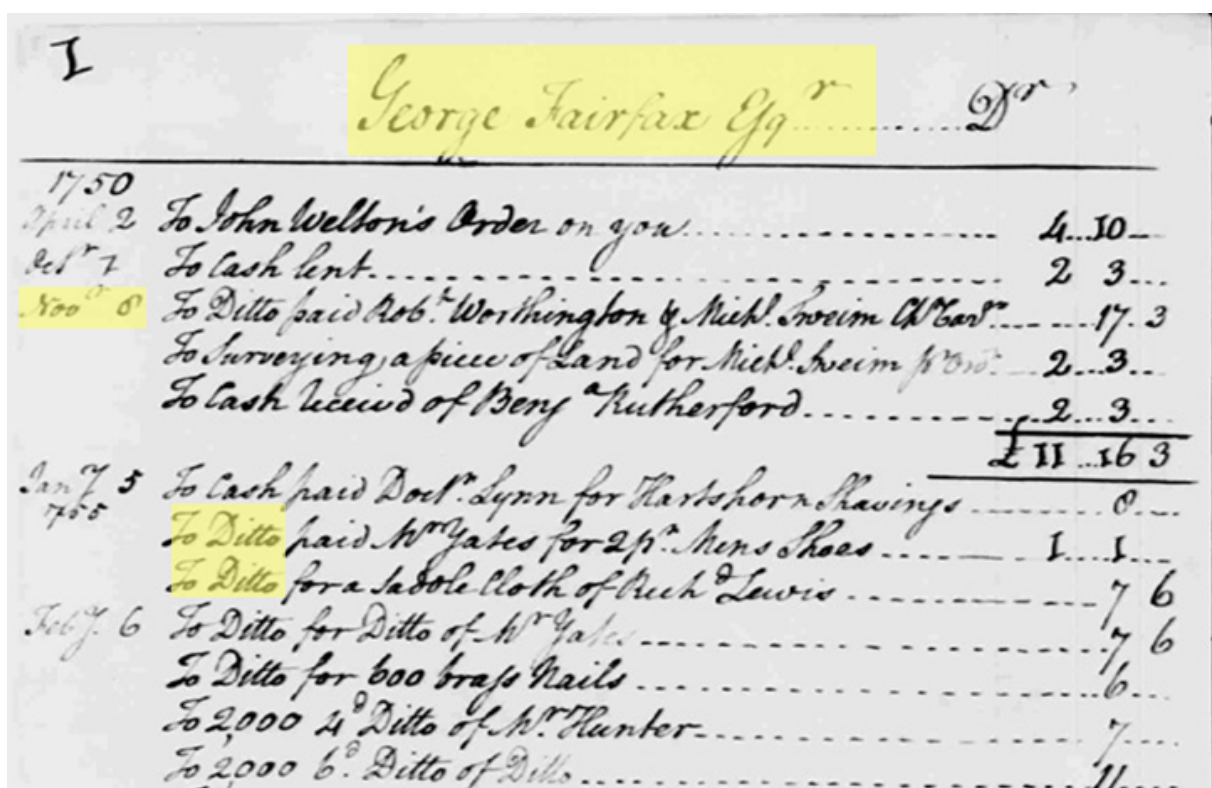 I
George Fairfax Esqr ............ Dr
1750
April 2 To John Welton's Order on you ............ 4 .. 10
Octr 7 To Cash lent ............ 2 3
Novr 8 To Ditto paid Robt. Worthington & Michl. Sweim ............ 17 . 3
To Surveying a piece of Land for Michl. Sweim pr Ordr. 2 ... 3
To Cash receivd of Benja Rutherford ............ 2 .. 3
£ 11 .. 16 3
Jany 5 To Cash paid Doctr. Lynn for Hartshorn Shavings ............ 8
To Ditto paid Mr Yates for 2 pr. Mens Shoes ............ 1 .. 1
To Ditto for a Saddle Cloth of Richd Lewis ............ 7 6
Feby. 6 To Ditto for Ditto of Mr Yates ............ 7 6
To Ditto for 600 brass Nails ............ 6
To 2,000 4d Ditto of Mr. Hunter ............ 7
To 2,000 6d. Ditto of Ditto ............ 11